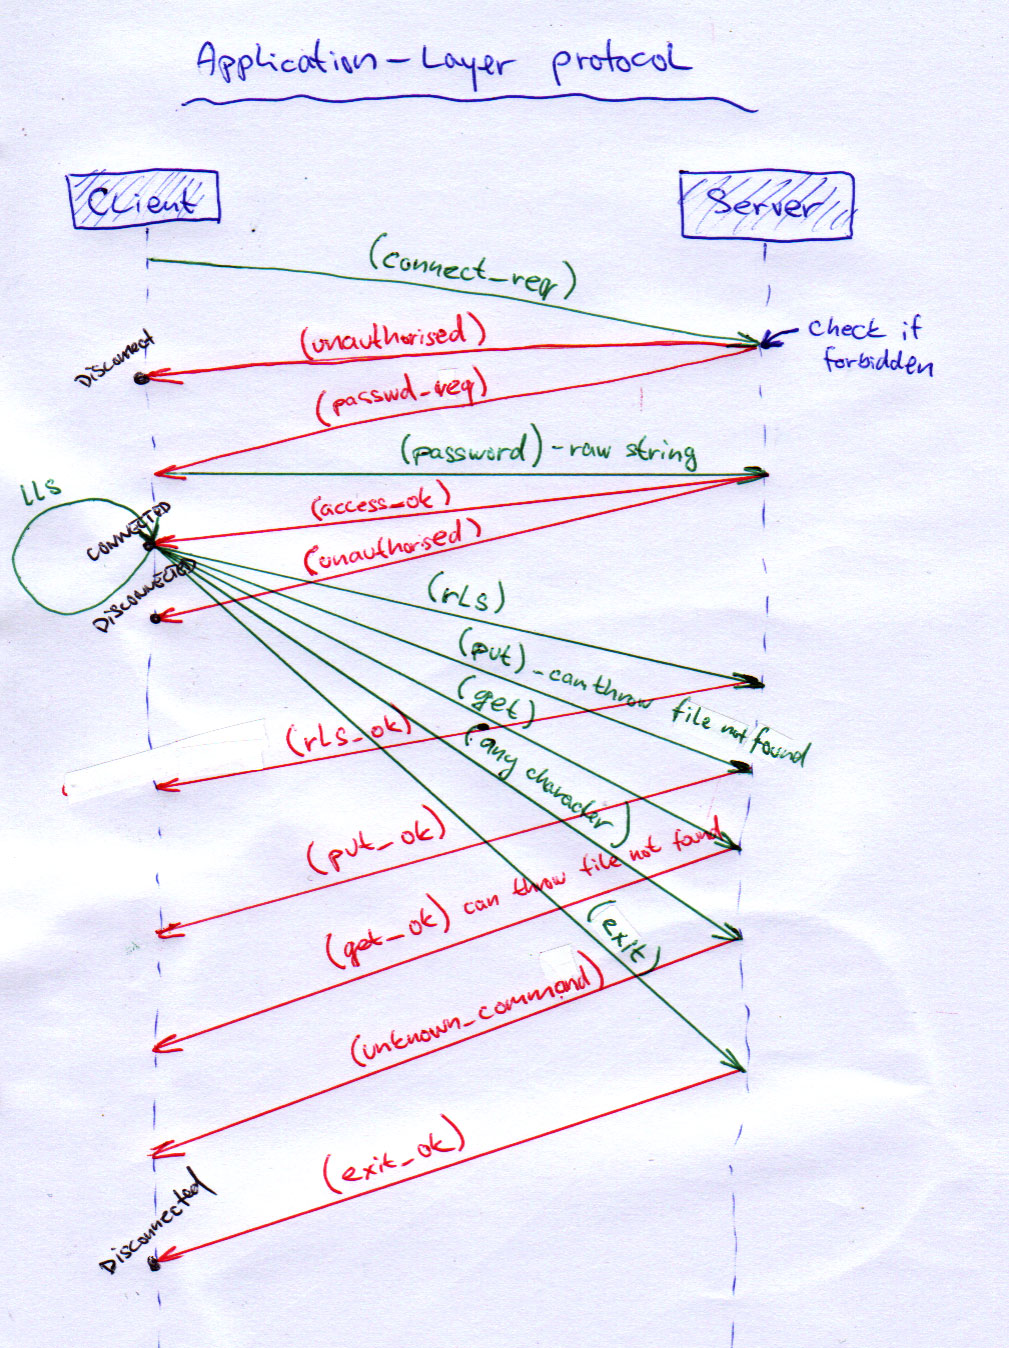 Application-Layer protocol
Client
Server
(connect_req)
(unauthorised)
check if
forbidden
Disconnect
(passwd_req)
(password) - raw string
LLS
(access_ok)
CONNECTED
(unauthorised)
DISCONNECTED
(rLs)
(put) - can throw file not found
(get)
(rLs_ok)
(any character)
(put_ok)
(get_ok) can throw file not found
(exit)
(unknown_command)
(exit_ok)
Disconnected